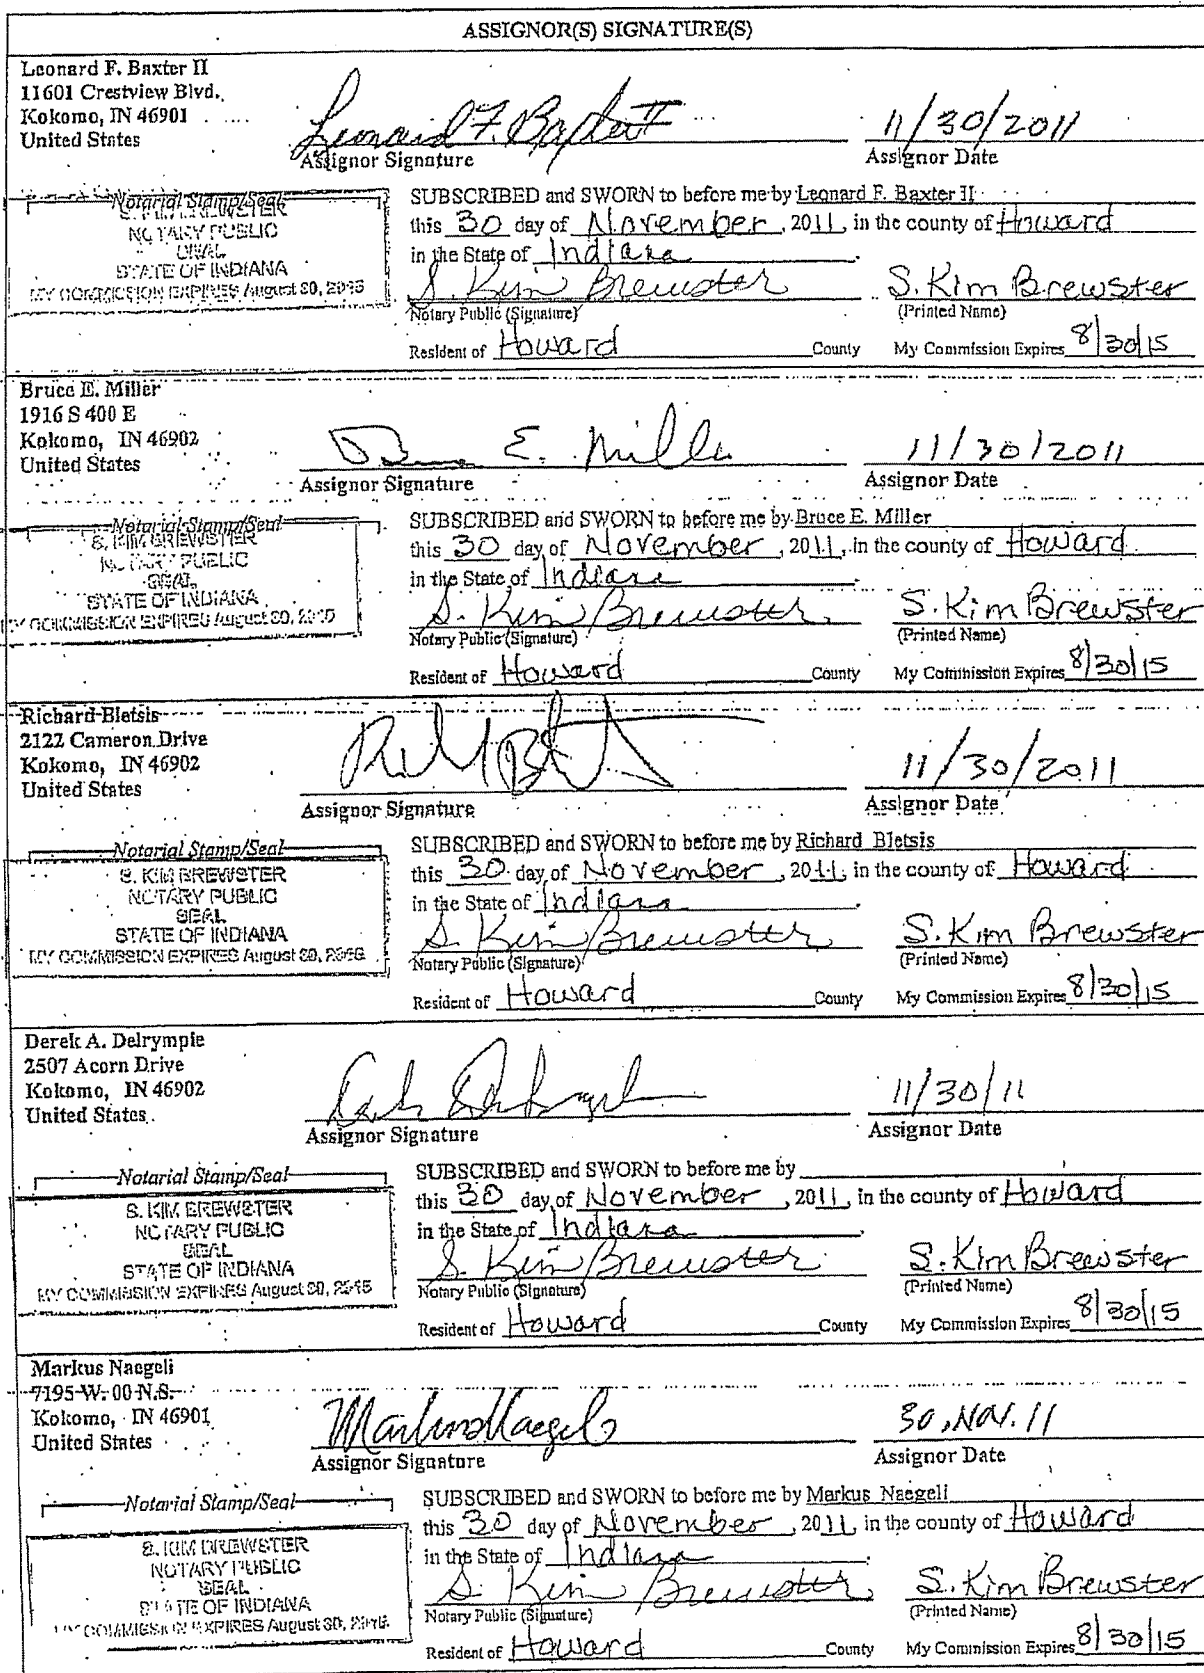 ASSIGNOR(S) SIGNATURE(S)
Leonard F. Baxter II
11601 Crestview Blvd.
Kokomo, IN 46901
United States
Leonard F. Baxter II
11/30/2011
Assignor Signature
Assignor Date
Notarial Stamp/Seal
S. KIM BREWSTER
NOTARY PUBLIC
SEAL
STATE OF INDIANA
MY COMMISSION EXPIRES August 30, 2015
SUBSCRIBED and SWORN to before me by Leonard F. Baxter II
this 30 day of November, 2011, in the county of Howard
in the State of Indiana.
S. Kim Brewster S. Kim Brewster
Notary Public (Signature) (Printed Name)
Resident of Howard County My Commission Expires 8/30/15
Bruce E. Miller
1916 S 400 E
Kokomo, IN 46902
United States
Bruce E. Miller
11/30/2011
Assignor Signature
Assignor Date
Notarial Stamp/Seal
S. KIM BREWSTER
NOTARY PUBLIC
SEAL
STATE OF INDIANA
MY COMMISSION EXPIRES August 30, 2015
SUBSCRIBED and SWORN to before me by Bruce E. Miller
this 30 day of November, 2011, in the county of Howard
in the State of Indiana.
S. Kim Brewster S. Kim Brewster
Notary Public (Signature) (Printed Name)
Resident of Howard County My Commission Expires 8/30/15
Richard Bletsis
2122 Cameron Drive
Kokomo, IN 46902
United States
11/30/2011
Assignor Signature
Assignor Date
Notarial Stamp/Seal
S. KIM BREWSTER
NOTARY PUBLIC
SEAL
STATE OF INDIANA
MY COMMISSION EXPIRES August 30, 2015
SUBSCRIBED and SWORN to before me by Richard Bletsis
this 30 day of November, 2011, in the county of Howard
in the State of Indiana.
S. Kim Brewster S. Kim Brewster
Notary Public (Signature) (Printed Name)
Resident of Howard County My Commission Expires 8/30/15
Derek A. Delrymple
2507 Acorn Drive
Kokomo, IN 46902
United States
11/30/11
Assignor Signature
Assignor Date
Notarial Stamp/Seal
S. KIM BREWSTER
NOTARY PUBLIC
SEAL
STATE OF INDIANA
MY COMMISSION EXPIRES August 30, 2015
SUBSCRIBED and SWORN to before me by
this 30 day of November, 2011, in the county of Howard
in the State of Indiana.
S. Kim Brewster S. Kim Brewster
Notary Public (Signature) (Printed Name)
Resident of Howard County My Commission Expires 8/30/15
Markus Naegeli
7195 W. 00 N.S.
Kokomo, IN 46901
United States
Markus Naegeli
30, NOV. 11
Assignor Signature
Assignor Date
Notarial Stamp/Seal
S. KIM BREWSTER
NOTARY PUBLIC
SEAL
STATE OF INDIANA
MY COMMISSION EXPIRES August 30, 2015
SUBSCRIBED and SWORN to before me by Markus Naegeli
this 30 day of November, 2011, in the county of Howard
in the State of Indiana.
S. Kim Brewster S. Kim Brewster
Notary Public (Signature) (Printed Name)
Resident of Howard County My Commission Expires 8/30/15